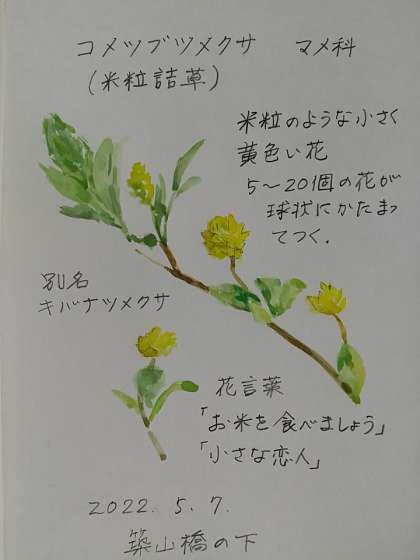 コメツブツメクサ マメ科
(米粒詰草)
米粒のような小さく
黄色い花
5～20個の花が
球状にかたまっ
てつく.
別名
キバナツメクサ
花言葉
「お米を食べましょう」
「小さな恋人」
2022. 5. 7.
築山橋の下